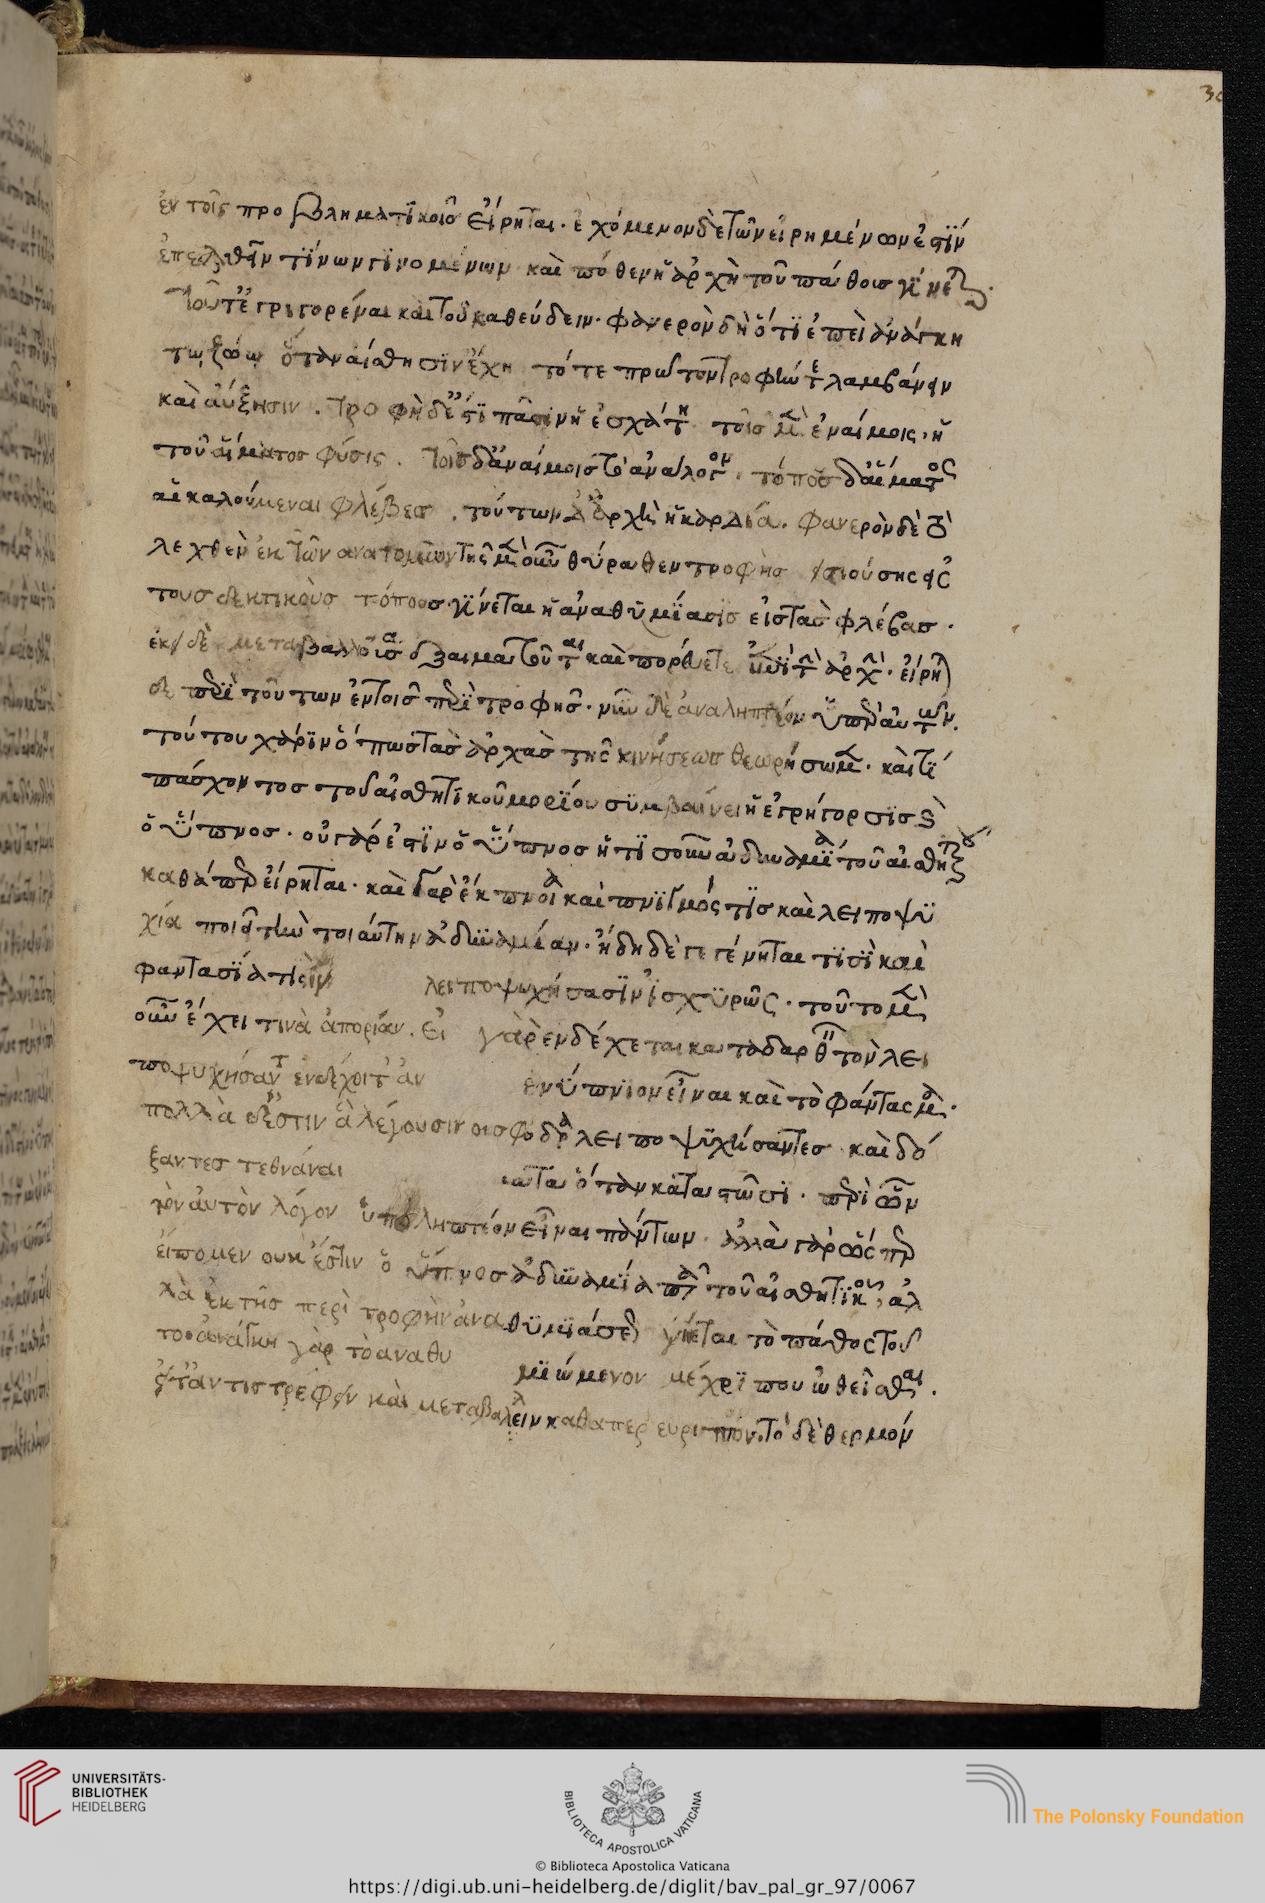 ἐν τοῖς προβληματϊκοῖσ εἴρηται· ἐχόμενον δὲ τῶν εἰρημένων ἐστϊν
ἐπελθεῖν τϊνων γϊνομένων καὶ πόθεν ἡ ἀρχὴ τοῦ πάθουσ γϊνεται·
τοῦ τὲ ἐγρηγορέναι καὶ τοῦ καθεύδειν· φανερὸν δὴ ὅτϊ ἐπεὶ ἀνάγκη
τω ζώω ὅταν αἴσθησϊν ἔχη τότε πρῶτον τροφὴν τε λαμβάνειν
καὶ αὔξησιν. τροφὴ δ' ἐστϊ πᾶσϊν ἡ ἐσχάτη τοῖσ μὲν ἐναίμοις· ἡ
τοῦ αἵματος φύσις. τοῖσ δ' ἀναίμοισ τὸ ἀνάλογον· τόποσ δ' αἵματος
αἱ καλούμεναι φλέβεσ. τούτων δ' ἀρχὴ ἡ καρδία. φανερὸν δὲ τὸ
λεχθὲν ἐκ τῶν ἀνατομῶν τῆς μὲν οὖν θύραθεν τροφὴσ εἰσιούσης εἰς
τουσ δεκτικοὺσ τόπουσ γϊνεται ἡ ἀναθυμϊασϊσ εἰσ τὰσ φλέβασ·
ἐκεῖ δὲ μεταβάλλουσα ἐξαιματοῦται καὶ πορεύεται ἐπὶ τὴν ἀρχήν· εἴρηται
δὲ περϊ τούτων ἐν τοῖσ περϊ τροφῆσ· νῦν δὲ ἀναληπτέον ὑπὲρ αὐτων.
τούτου χάρϊν ὅπωσ τὰσ ἀρχὰσ τῆς κινήσεωσ θεωρήσωμεν· καὶ τϊ
πάσχοντοσ τοῦ αἰσθητϊκοῦ μορϊου συμβαίνει ἡ ἐγρήγορσϊσ καὶ
ὁ ὕπνοσ· οὐ γάρ ἐστϊν ὁ ὕπνοσ ἡτϊσοῦν ἀδυναμϊα τοῦ αἰσθητϊκοῦ
καθάπερ εἴρηται· καὶ γὰρ ἔκπνοια καὶ πνϊγμός τϊσ καὶ λειποψυ
χία ποιεῖ τὴν τοιαύτην ἀδυναμίαν· ἤδη δὲ γεγένηται τϊσϊ καὶ
φαντασϊα τὶσϊν λειποψυχήσασϊν ἰσχυρῶς· τοῦτο μὲν
οὖν ἔχει τινὰ ἀπορίαν. εἰ γὰρ ἐνδέχεται καταδαρθῆ τὸν λει
ποψυχήσαντ ἐνδέχοιτ ἂν ἐνύπνϊον εἶναι καὶ τὸ φάντασμα·
πολλὰ δ' ἔστιν ἃ λέγουσιν οι σφόδρα λειποψυχήσαντεσ καὶ δό
ξαντεσ τεθνάναι ταῦτα ὅταν καταστῶσϊ· περὶ ὧν
τὸν αὐτὸν λόγον ὑποληπτέον εἶναι πάντων. ἀλλὰ γὰρ ὥσπερ
εἴπομεν οὐκ ἔστιν ὁ ὕπνοσ ἀδυναμϊα πᾶσα τοῦ αἰσθητϊκοῦ, ἀλ
λὰ ἐκ τῆσ περὶ τροφὴν ἀναθυμϊάσεωσ γίνεται τὸ πάθος τοῦ
το· ἀνάγκη γὰρ τὸ ἀναθυ μϊώμενον μέχρϊ που ὠθεῖσθαι.
εἶτ' ἀντιστρέφειν καὶ μεταβαλλειν καθαπερ ευριπον. τὸ δὲ θερμόν
UNIVERSITÄTS-
BIBLIOTHEK
HEIDELBERG
BIBLIOTECA APOSTOLICA VATICANA
The Polonsky Foundation
© Biblioteca Apostolica Vaticana
https://digi.ub.uni-heidelberg.de/diglit/bav_pal_gr_97/0067